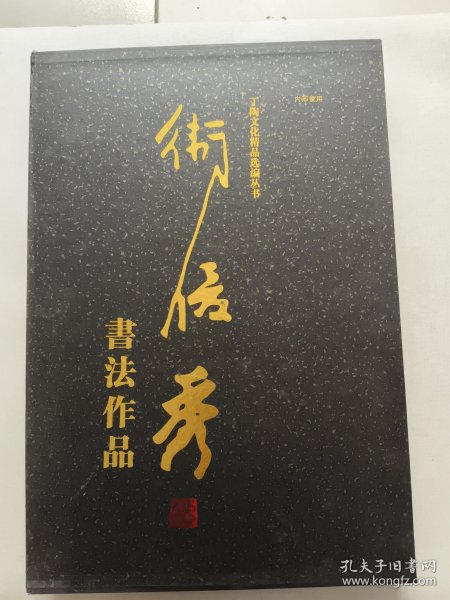 内部使用
丁陶文化精品选编丛书
衛俊秀
書法作品
孔夫子旧书网
www.kongfz.com